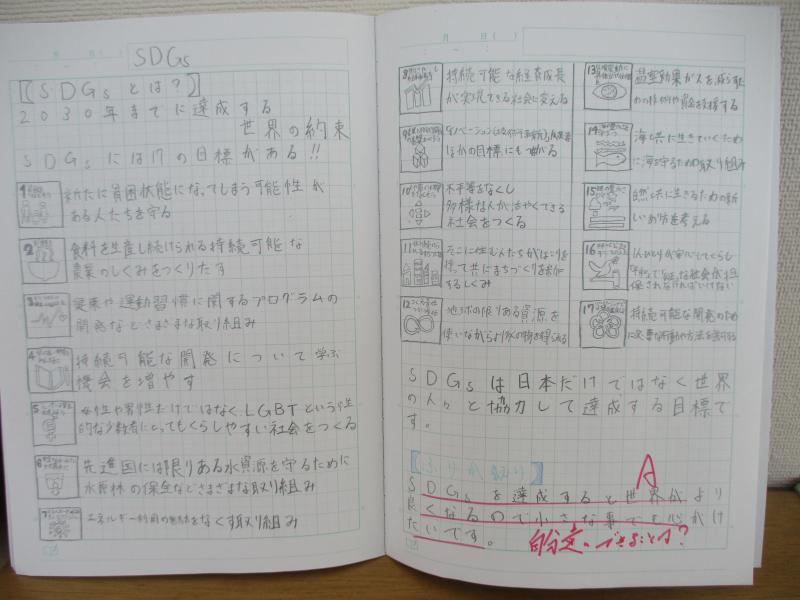 SDGs
【SDGsとは？】
2030年までに達成する
世界の約束
SDGsには17の目標がある!!
1
新たに貧困状態になってしまう可能性が
ある人たちを守る
2
食料を生産し続けられる持続可能な
農業のしくみをつくりだす
3
健康や運動習慣に関するプログラムの
開発などさまざまな取り組み
4
持続可能な開発について学ぶ
機会を増やす
5
女性や男性だけではなく、LGBTという性
的な少数者にとってもくらしやすい社会をつくる
6
先進国には限りある水資源を守るために
水源林の保全などさまざまな取り組み
7
エネルギー利用の無駄をなくす取り組み
8
持続可能な経済成長
が実現できる社会に変える
9
ほかの目標にも繋がる
10
不平等をなくし
多様な人が活やくできる
社会をつくる
11
そこに住む人たちが
共にまちづくりを
するしくみ
12
地球の限りある資源を
使いながらより多くの物を得られる
13
温室効果ガスを減らすた
めの技術や資金を支援する
14
海と共に生きていくため
に海を守るための取り組み
15
自然と共に生きるための新し
いあり方を考える
16
1人ひとりが安心してくらし
な社会が担
保されなければいけない
17
持続可能な開発のため
に必要な行動や方法を
SDGsは日本だけではなく世界
の人々と協力して達成する目標で
す。
【ふりかえり】
A
SDGsを達成すると世界がより
良くなるので小さな事でも心がけ
たいです。
自分達にできることは？